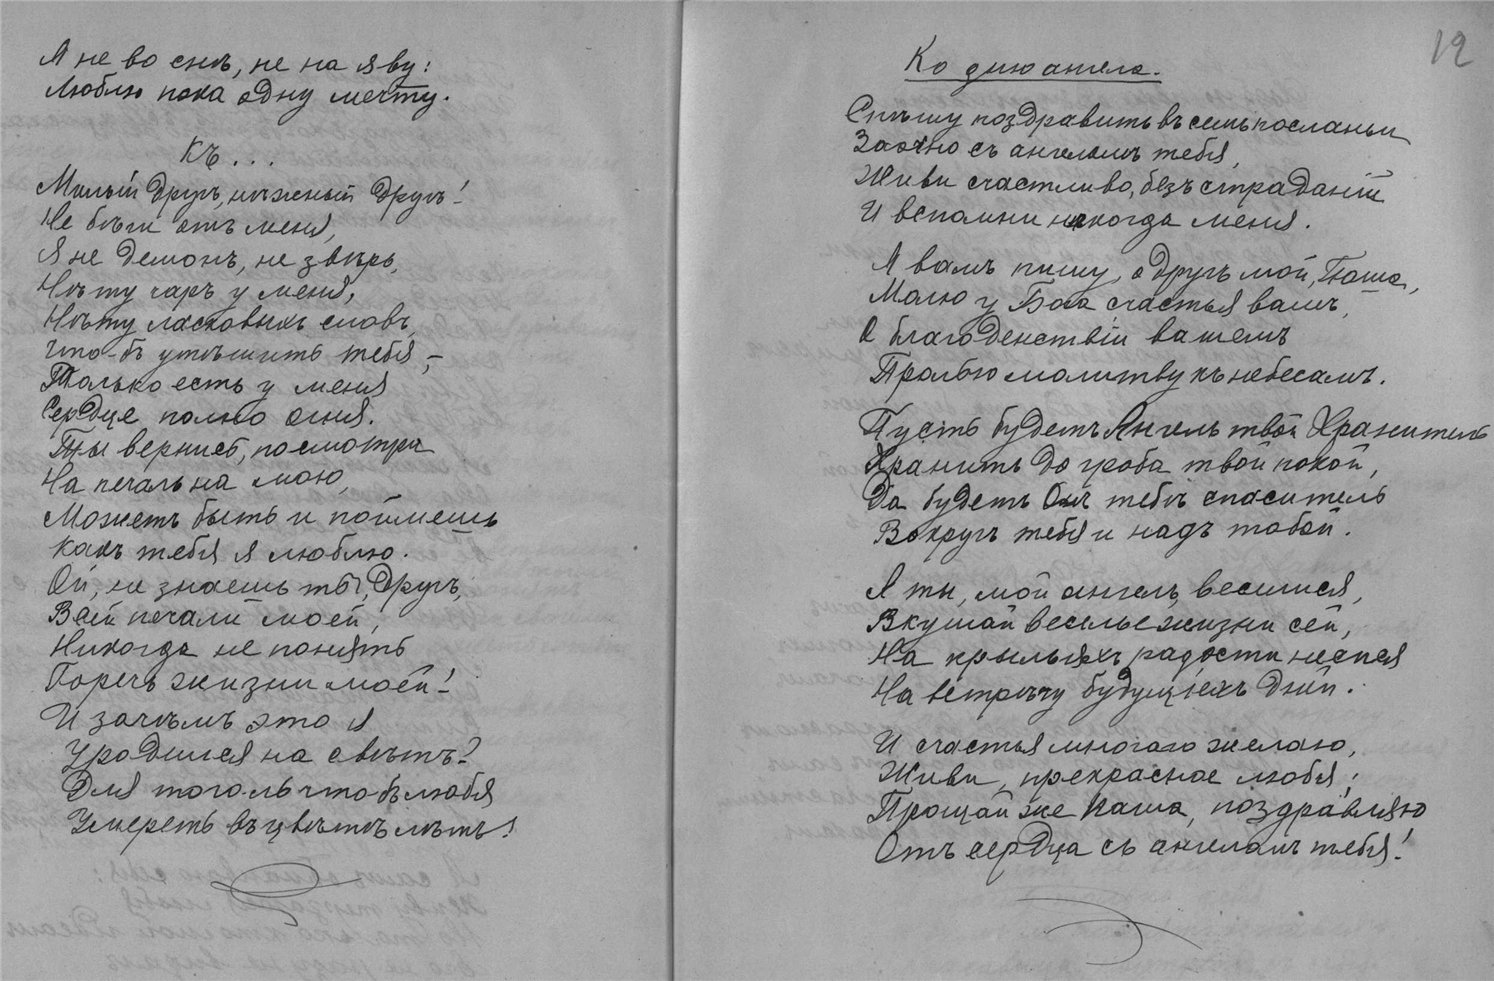 А не во снѣ, не на яву:
Люблю пока одну мечту.
Къ...
Милый другъ, нѣжный другъ!
Не бѣги отъ меня,
Я не демонъ, не звѣрь,
Нѣту чаръ у меня,
Нѣту ласковыхъ словъ,
Что-бъ утѣшить тебя, –
Только есть у меня
Сердце полно огня.
Ты вернись, посмотри
На печаль на мою,
Можетъ быть и поймешь
Какъ тебя я люблю.
Ой, не знаешь ты, другъ,
Всей печали моей,
Никогда не понять
Горечь жизни моей!
И зачѣмъ это я
Уродился на свѣтъ?
Для того ль что бъ любя
Умереть въ цвѣтѣ лѣтъ!
12
Ко дню ангела.
Спѣшу поздравить въ семъ посланьи
Заочно съ ангеломъ тебя,
Живи счастливо, безъ страданій
И вспомни некогда меня.
Я вамъ пишу, о другъ мой, Паша,
Молю у Бога счастья вамъ,
О благоденствіи вашемъ
Пролью молитву къ небесамъ.
Пусть будетъ Ангелъ твой Хранитель
Хранить до гроба твой покой,
Да будетъ Онъ тебѣ спаситель
Вокругъ тебя и надъ тобой.
А ты, мой ангелъ, веселися,
Вкушай веселье жизни сей,
На крыльяхъ радости несися
На встрѣчу будущіехъ дней.
И счастья многого желаю,
Живи, прекрасное любя;
Прощай же Паша, поздравляю
Отъ сердца съ ангеломъ тебя!